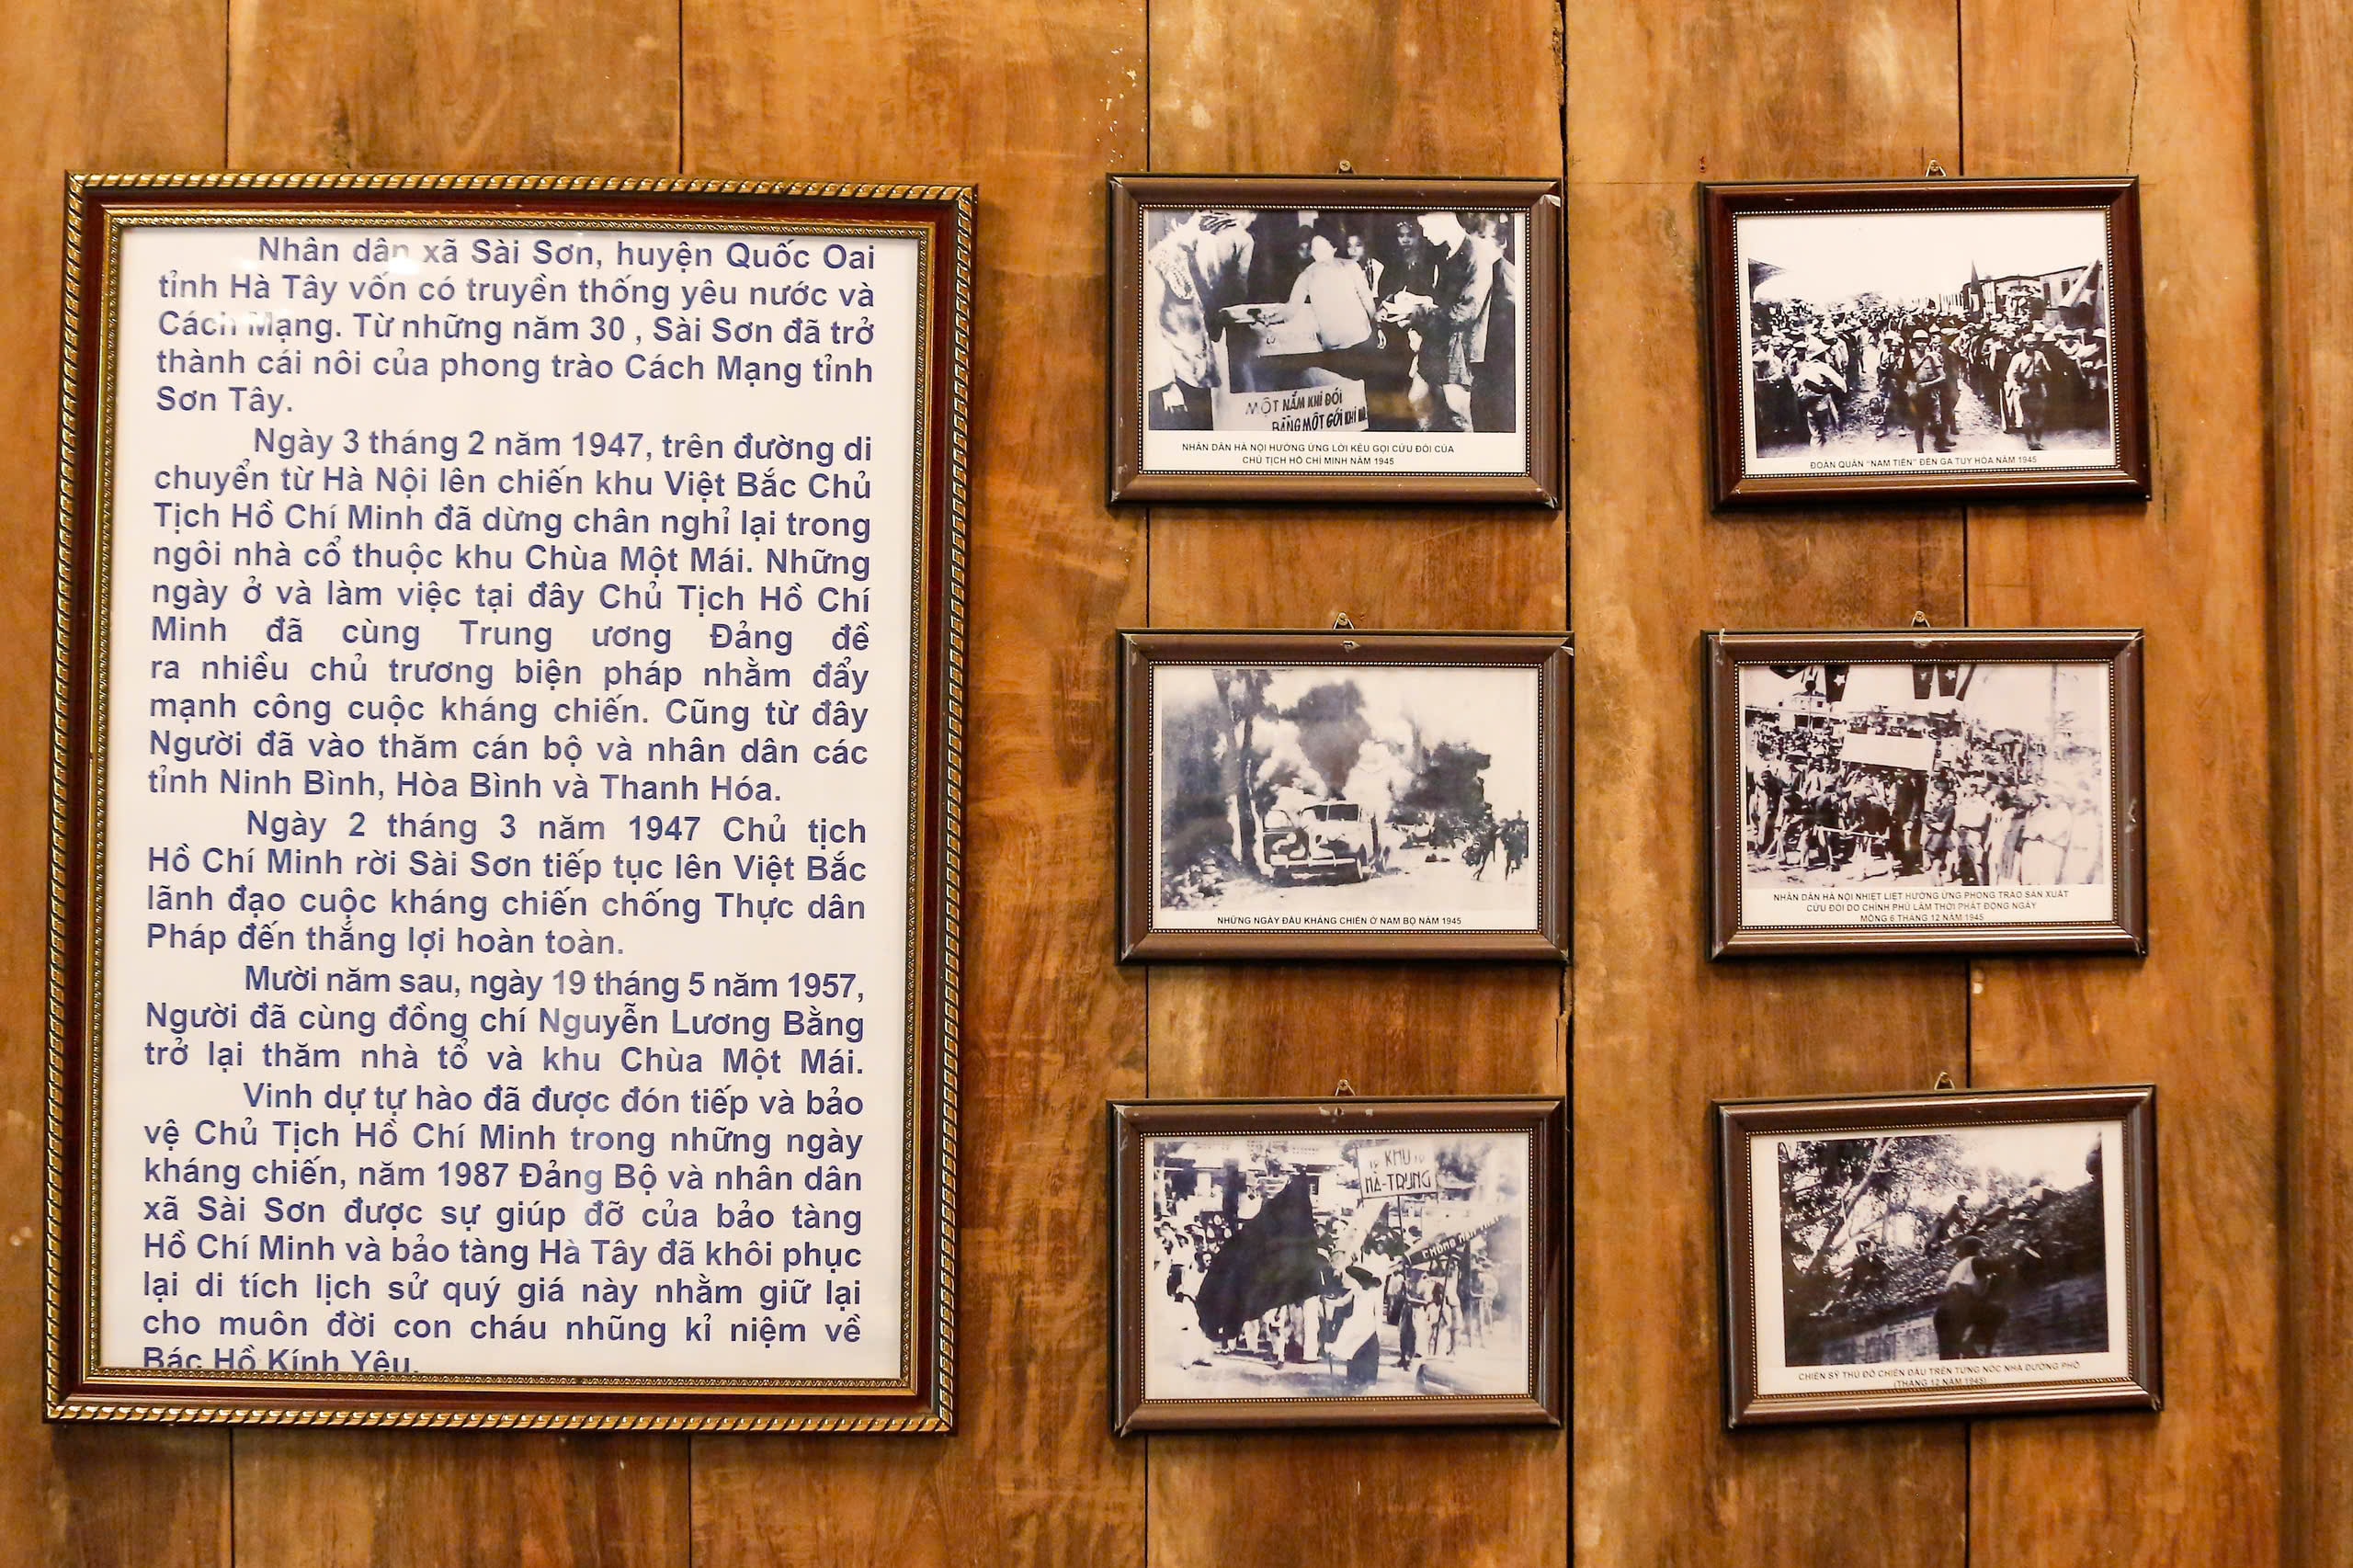 Nhân dân xã Sài Sơn, huyện Quốc Oai
tỉnh Hà Tây vốn có truyền thống yêu nước và
Cách Mạng. Từ những năm 30 , Sài Sơn đã trở
thành cái nôi của phong trào Cách Mạng tỉnh
Sơn Tây.
Ngày 3 tháng 2 năm 1947, trên đường di
chuyển từ Hà Nội lên chiến khu Việt Bắc Chủ
Tịch Hồ Chí Minh đã dừng chân nghỉ lại trong
ngôi nhà cổ thuộc khu Chùa Một Mái. Những
ngày ở và làm việc tại đây Chủ Tịch Hồ Chí
Minh đã cùng Trung ương Đảng đề
ra nhiều chủ trương biện pháp nhằm đẩy
mạnh công cuộc kháng chiến. Cũng từ đây
Người đã vào thăm cán bộ và nhân dân các
tỉnh Ninh Bình, Hòa Bình và Thanh Hóa.
Ngày 2 tháng 3 năm 1947 Chủ tịch
Hồ Chí Minh rời Sài Sơn tiếp tục lên Việt Bắc
lãnh đạo cuộc kháng chiến chống Thực dân
Pháp đến thắng lợi hoàn toàn.
Mười năm sau, ngày 19 tháng 5 năm 1957,
Người đã cùng đồng chí Nguyễn Lương Bằng
trở lại thăm nhà tổ và khu Chùa Một Mái.
Vinh dự tự hào đã được đón tiếp và bảo
vệ Chủ Tịch Hồ Chí Minh trong những ngày
kháng chiến, năm 1987 Đảng Bộ và nhân dân
xã Sài Sơn được sự giúp đỡ của bảo tàng
Hồ Chí Minh và bảo tàng Hà Tây đã khôi phục
lại di tích lịch sử quý giá này nhằm giữ lại
cho muôn đời con cháu nhũng kỉ niệm về
Bác Hồ Kính Yêu.
MỘT NẮM KHI ĐÓI
BẰNG MỘT GÓI KHI
NHÂN DÂN HÀ NỘI HƯỞNG ỨNG LỜI KÊU GỌI CỨU ĐÓI CỦA
CHỦ TỊCH HỒ CHÍ MINH NĂM 1945
ĐOÀN QUÂN "NAM TIẾN" ĐẾN GA TUY HÒA NĂM 1945
NHỮNG NGÀY ĐẦU KHÁNG CHIẾN Ở NAM BỘ NĂM 1945
NHÂN DÂN HÀ NỘI NHIỆT LIỆT HƯỞNG ỨNG PHONG TRÀO SẢN XUẤT
CỨU ĐÓI DO CHÍNH PHỦ LÂM THỜI PHÁT ĐỘNG NGÀY
MÔNG 6 THÁNG 12 NĂM 1945
KHU
HÀ-TRUNG
CHỐNG
CHIẾN SỸ THỦ ĐÔ CHIẾN ĐẤU TRÊN TỪNG NÓC NHÀ ĐƯỜNG PHỐ
(THÁNG 12 NĂM 1945)